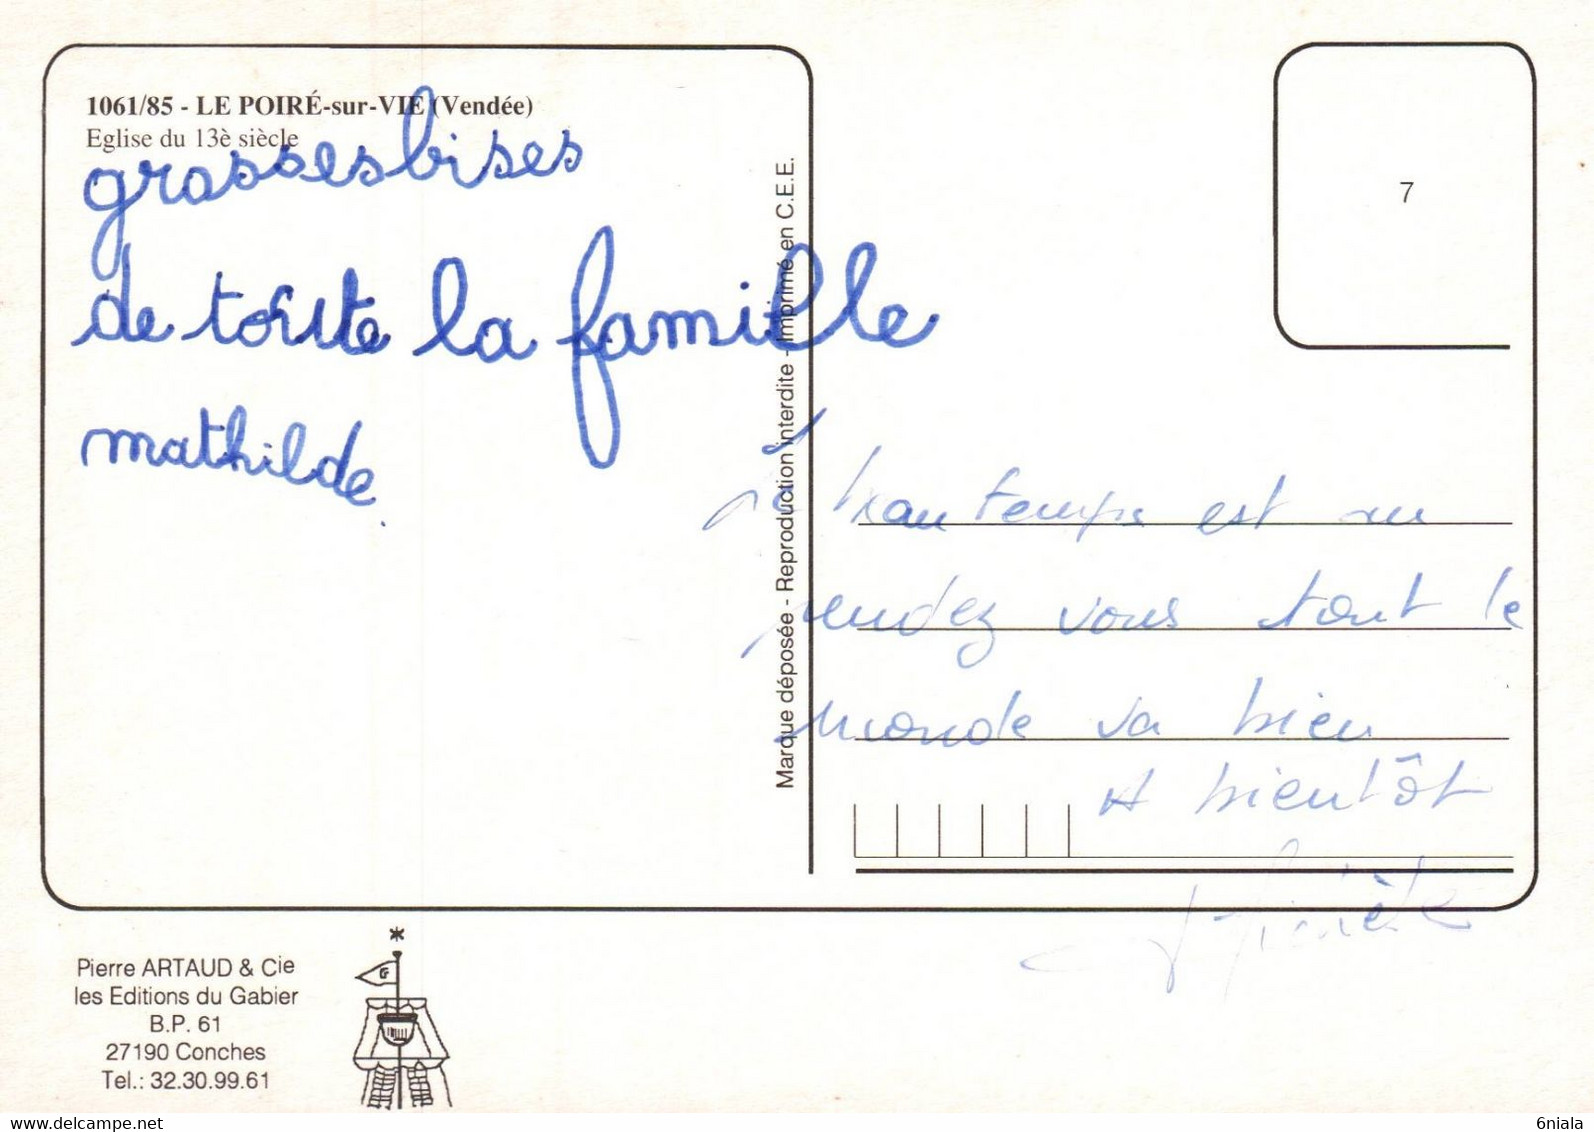 1061/85 - LE POIRÉ-sur-VIE (Vendée)
Eglise du 13è siècle
grosses bises
de toute la famille
mathilde.
Marque déposée - Reproduction interdite - Imprimé en C.E.E.
7
le beau temps est au
rendez vous tout le
monde va bien
A bientôt
Pierre ARTAUD & Cie
les Editions du Gabier
B.P. 61
27190 Conches
Tel.: 32.30.99.61
www.delcampe.net
6niala